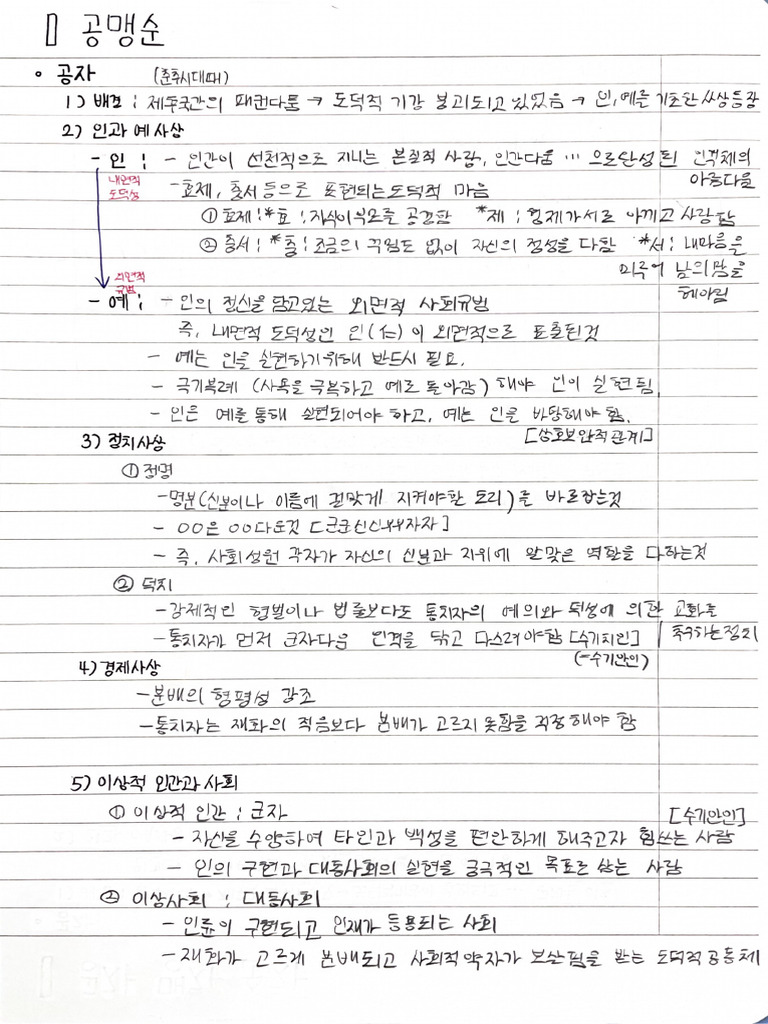 공맹순
◦ 공자 (춘추시대때)
1) 배경 : 제후국간의 패권다툼 → 도덕적 기강 붕괴되고 있었음 → 인, 예를 기초한 사상등장
2) 인과 예사상
- 인 : - 인간이 선천적으로 지니는 본질적 사람, 인간다움 … 으로 완성된 인격체의 아름다움
내면적 도덕성
- 효제, 충서 등으로 표현되는 도덕적 마음
① 효제 : *효 : 자식이 부모를 공경함 *제 : 형제가 서로 아끼고 사랑함
② 충서 : *충 : 조금의 꾸밈도 없이 자신의 정성을 다함 *서 : 내마음을
미루어 남의 맘을
헤아림
외면적 규범
- 예 : - 인의 정신을 담고있는 외면적 사회규범
즉, 내면적 도덕성인 인(仁)이 외면적으로 표출된것
- 예는 인을 실현하기위해 반드시 필요.
- 극기복례 (사욕을 극복하고 예로 돌아감) 해야 인이 실현됨
- 인은 예를 통해 실현되어야 하고, 예는 인을 바탕해야 함.
[상호보완적 관계]
3) 정치사상
① 정명
- 명분(신분이나 이름에 걸맞게 지켜야할 도리)을 바로잡는것
- OO은 OO다운것 [군군신신부부자자]
- 즉, 사회성원 각자가 자신의 신분과 지위에 알맞은 역할을 다하는것
② 덕치
- 강제적인 형벌이나 법률보다도 통치자의 예의와 덕성에 의한 교화를
추구하는 정치
- 통치자가 먼저 군자다운 인격을 닦고 다스려야함 [수기치인]
(=수기안인)
4) 경제사상
- 분배의 형평성 강조
- 통치자는 재화의 적음보다 분배가 고르지 못함을 걱정해야 함
5) 이상적 인간과 사회
① 이상적 인간 : 군자 [수기안인]
- 자신을 수양하여 타인과 백성을 편안하게 해주고자 힘쓰는 사람
- 인의 구현과 대동사회의 실현을 궁극적인 목표로 삼는 사람
② 이상사회 : 대동사회
- 인륜이 구현되고 인재가 등용되는 사회
- 재화가 고르게 분배되고 사회적약자가 보살핌을 받는 도덕적공동체